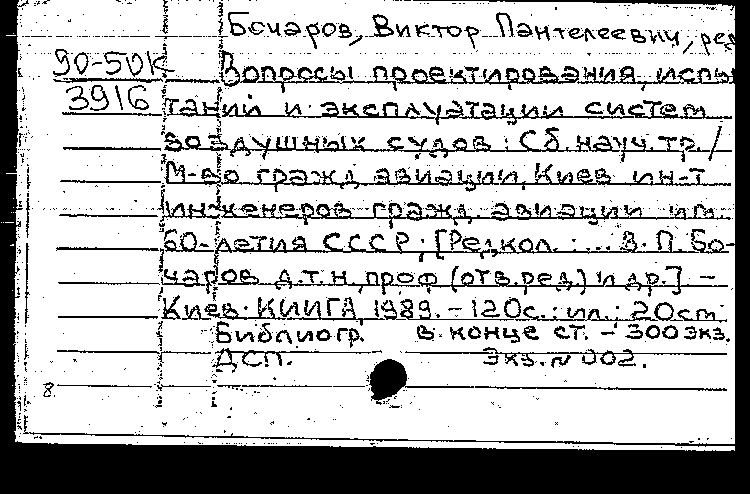 Бочаров, Виктор Пантелеевич, ред
90-50К Вопросы проектирования, испы-
3916 таний и эксплуатации систем
воздушных судов : Сб. науч. тр. /
М-во гражд. авиации, Киев. ин-т
инженеров гражд. авиации им.
60-летия СССР ; [Редкол. : ... В. П. Бо-
чаров д.т.н., проф (отв. ред.) и др.] -
Киев : КИИГА, 1989. - 120 с. : ил. ; 20 см
Библиогр. в конце ст. - 300 экз.
ДСП. Экз. № 002.
8.